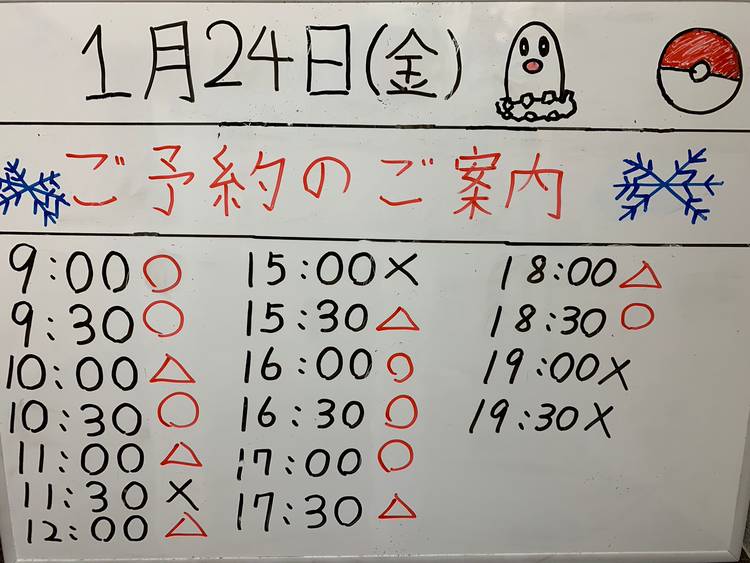 1月24日(金)
ご予約のご案内
9:00○
9:30○
10:00△
10:30○
11:00△
11:30×
12:00△
15:00×
15:30△
16:00○
16:30○
17:00○
17:30△
18:00△
18:30○
19:00×
19:30×